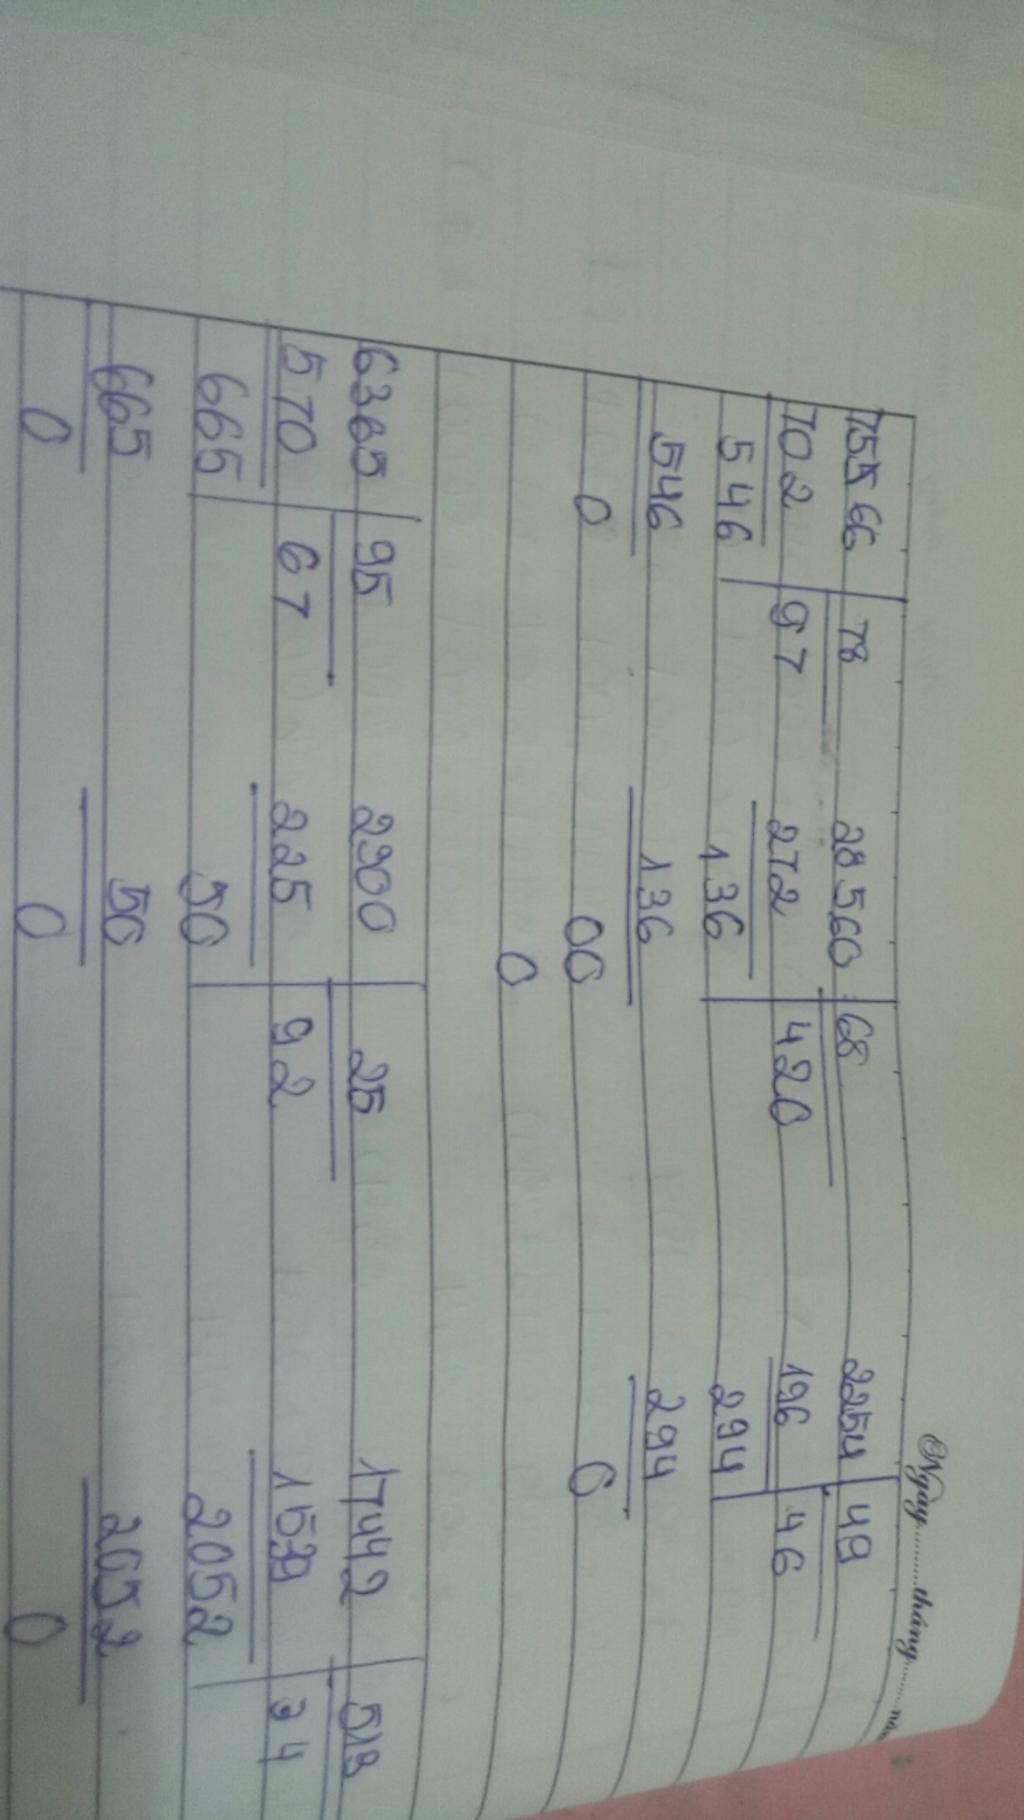 Ngày.........tháng........nă
7566 78 28560 68 2254 49
702 97 272 420 196 46
546 136 294
546 136 294
0 00 0
0
6365 95 2300 25 17442 513
570 67 225 92 1539 34
665 50 2052
665 50 2052
0 0 0